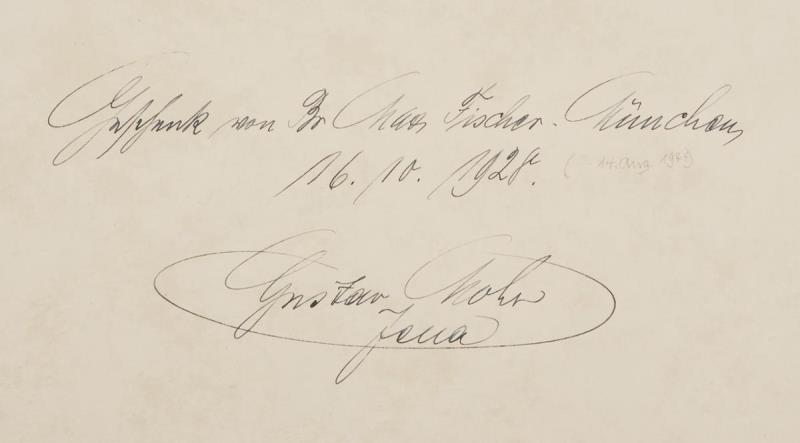 Geschenk von Dr Max Fischer. München,
16. 10. 1928. ( 14. Aug. 1949)
Gustav Mohr
Jena